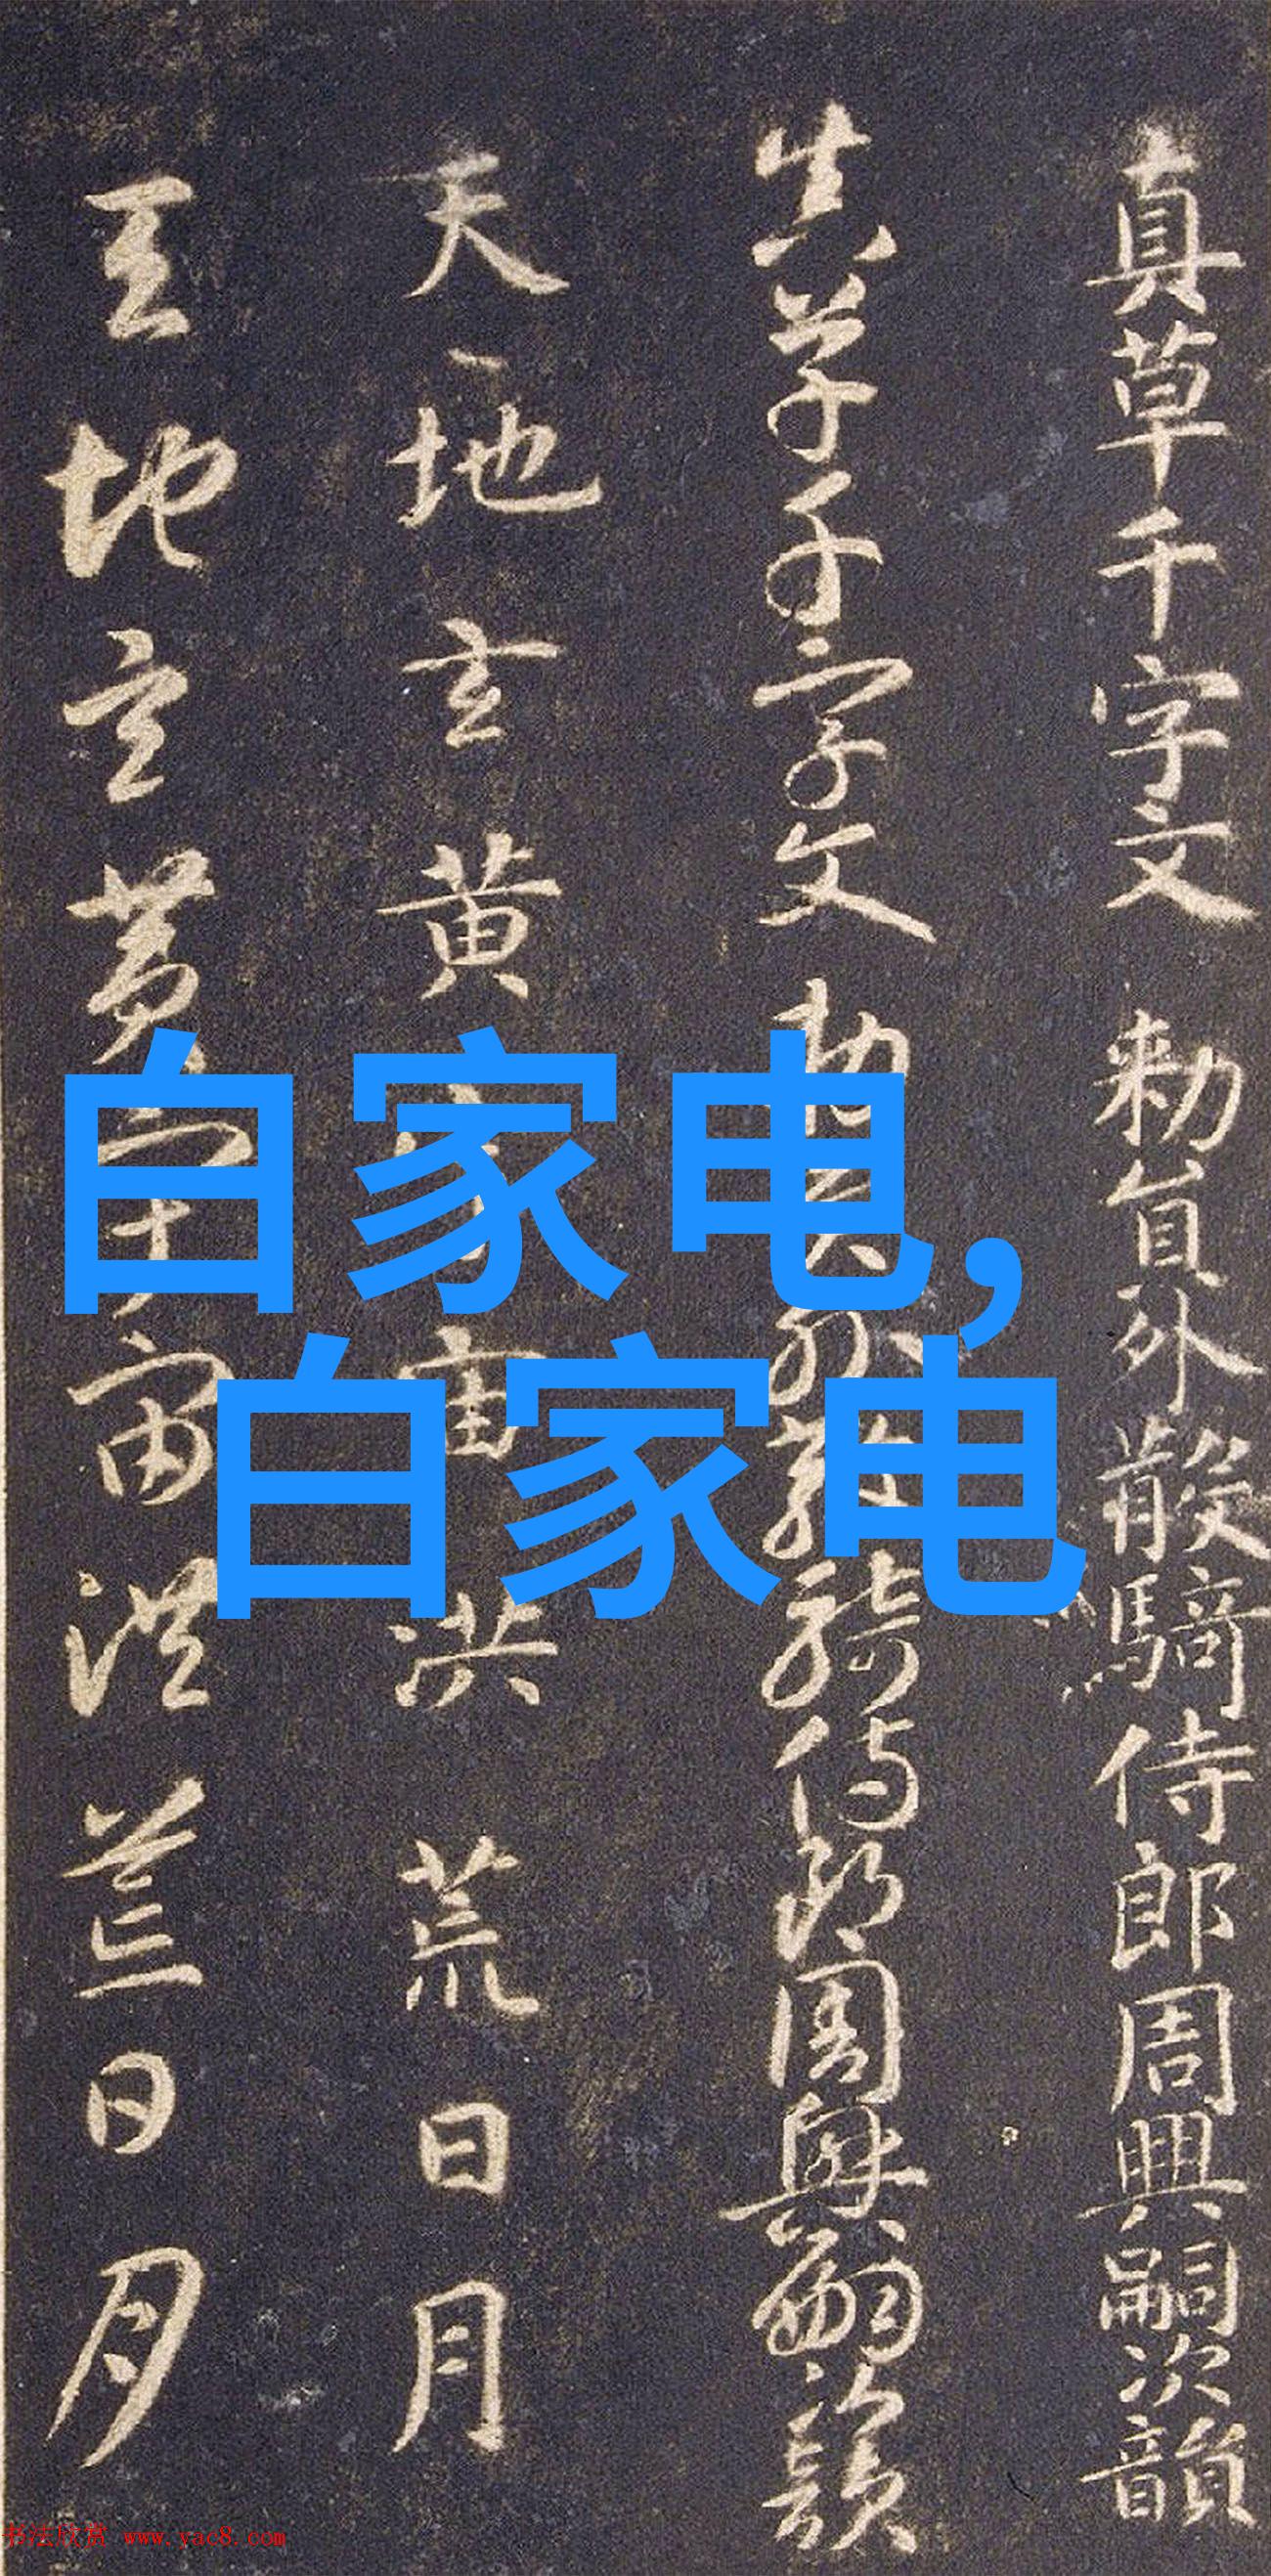 真草千字文 勅員外散騎侍郎周興嗣次韻
真草千字文 勅員外散騎侍郎周興嗣次韻
天地玄黄宇宙洪荒日月
天地玄黄宇宙洪荒日月
自家电,
白家电
书法欣赏 www.yac8.com